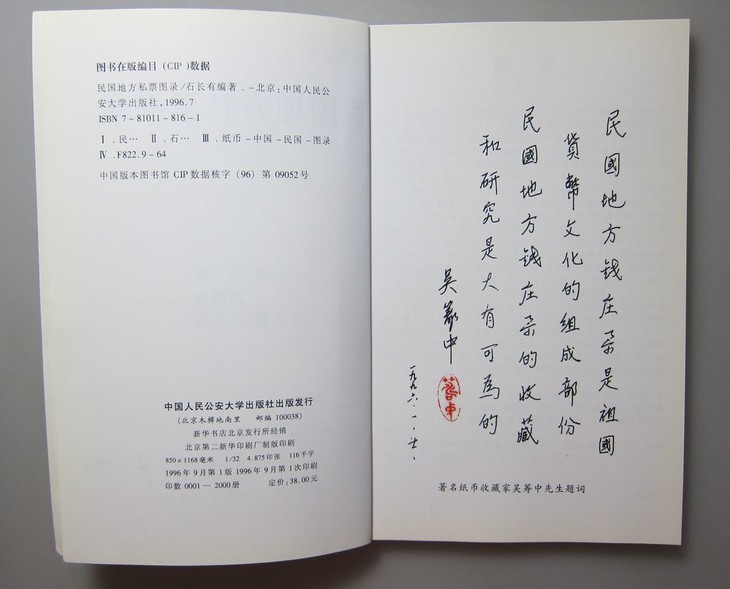 图书在版编目(CIP)数据
民国地方私票图录/石长有编著.-北京:中国人民公
安大学出版社,1996.7
ISBN 7-81011-816-1
Ⅰ.民… Ⅱ.石… Ⅲ.纸币-中国-民国-图录
Ⅳ.F822.9-64
中国版本图书馆 CIP 数据核字(96)第 09052 号
中国人民公安大学出版社出版发行
(北京木樨地南里 邮编 100038)
新华书店北京发行所经销
北京第二新华印刷厂制版印刷
850×1168毫米 1/32 4.875印张 116千字
1996年9月第1版 1996年9月第1次印刷
印数 0001—2000册 定价:38.00元
民國地方钱庄票是祖國
货幣文化的组成部份
民國地方钱庄票的收藏
和研究是大有可為的
吴筹中
一九九六.一.廿.
著名纸币收藏家吴筹中先生题词